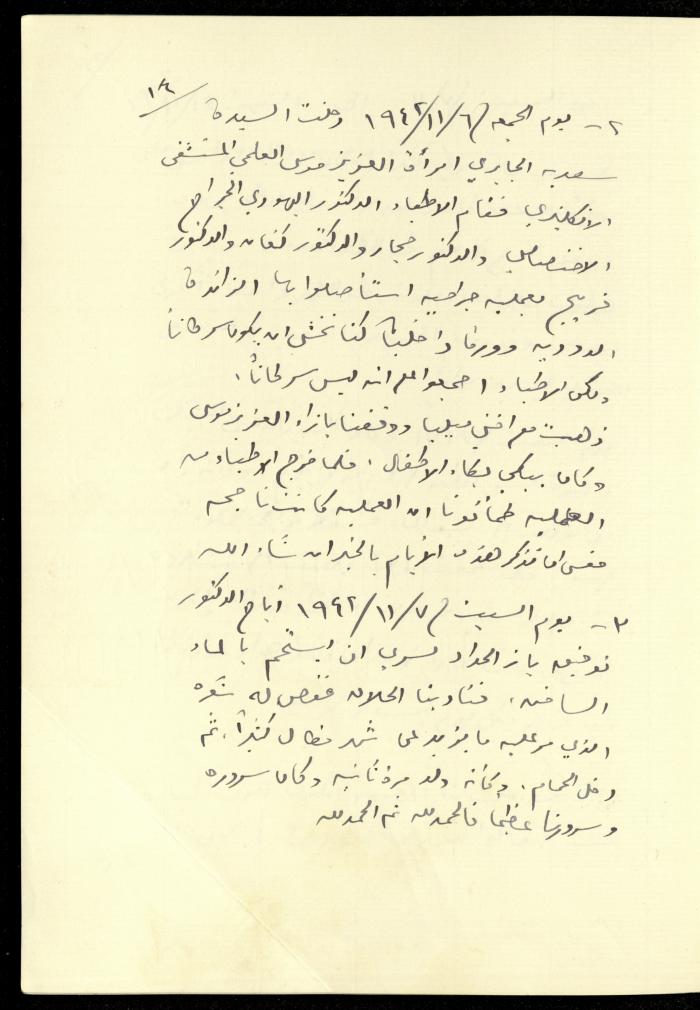 ١٤/
٢- يوم الجمعه في ١٩٤٢/١١/٦ دخلت السيدة
سعديه الجابري امرأة العزيز موسى العلمي المستشفى
الانكليزي فقام الاطباء الدكتور اليهودي الجراح
الاختصاصي والدكتور حجار والدكتور كنعان والدكتور
فريج بعمليه جراحيه استأصلوا بها الزائدة
الدوديه وورما داخليا كنا نخشى ان يكون سرطاناً
ولكن الاطباء اجمعوا على انه ليس سرطاناً.
ذهبت مع اختي ميليا ووقفنا بازاء العزيز موسى
وكان يبكي بكاء الاطفال. فلما خرج الاطباء من
العمليه طمأنونا ان العمليه كانت ناجحه
فعسى ان نذكر هذه الأيام بالخير ان شاء الله
٣- يوم السبت في ١٩٤٢/١١/٧ أباح الدكتور
توفيق باز الحداد لسري ان يستحم بالماء
الساخن. فنادينا الحلاق فقص له شعره
الذي مر عليه ما يزيد عن شهر فطال كثيراً، ثم
دخل الحمام. وكأنه ولد مرة ثانيه وكان سروره
وسرورنا عظيما فالحمد لله ثم الحمد لله